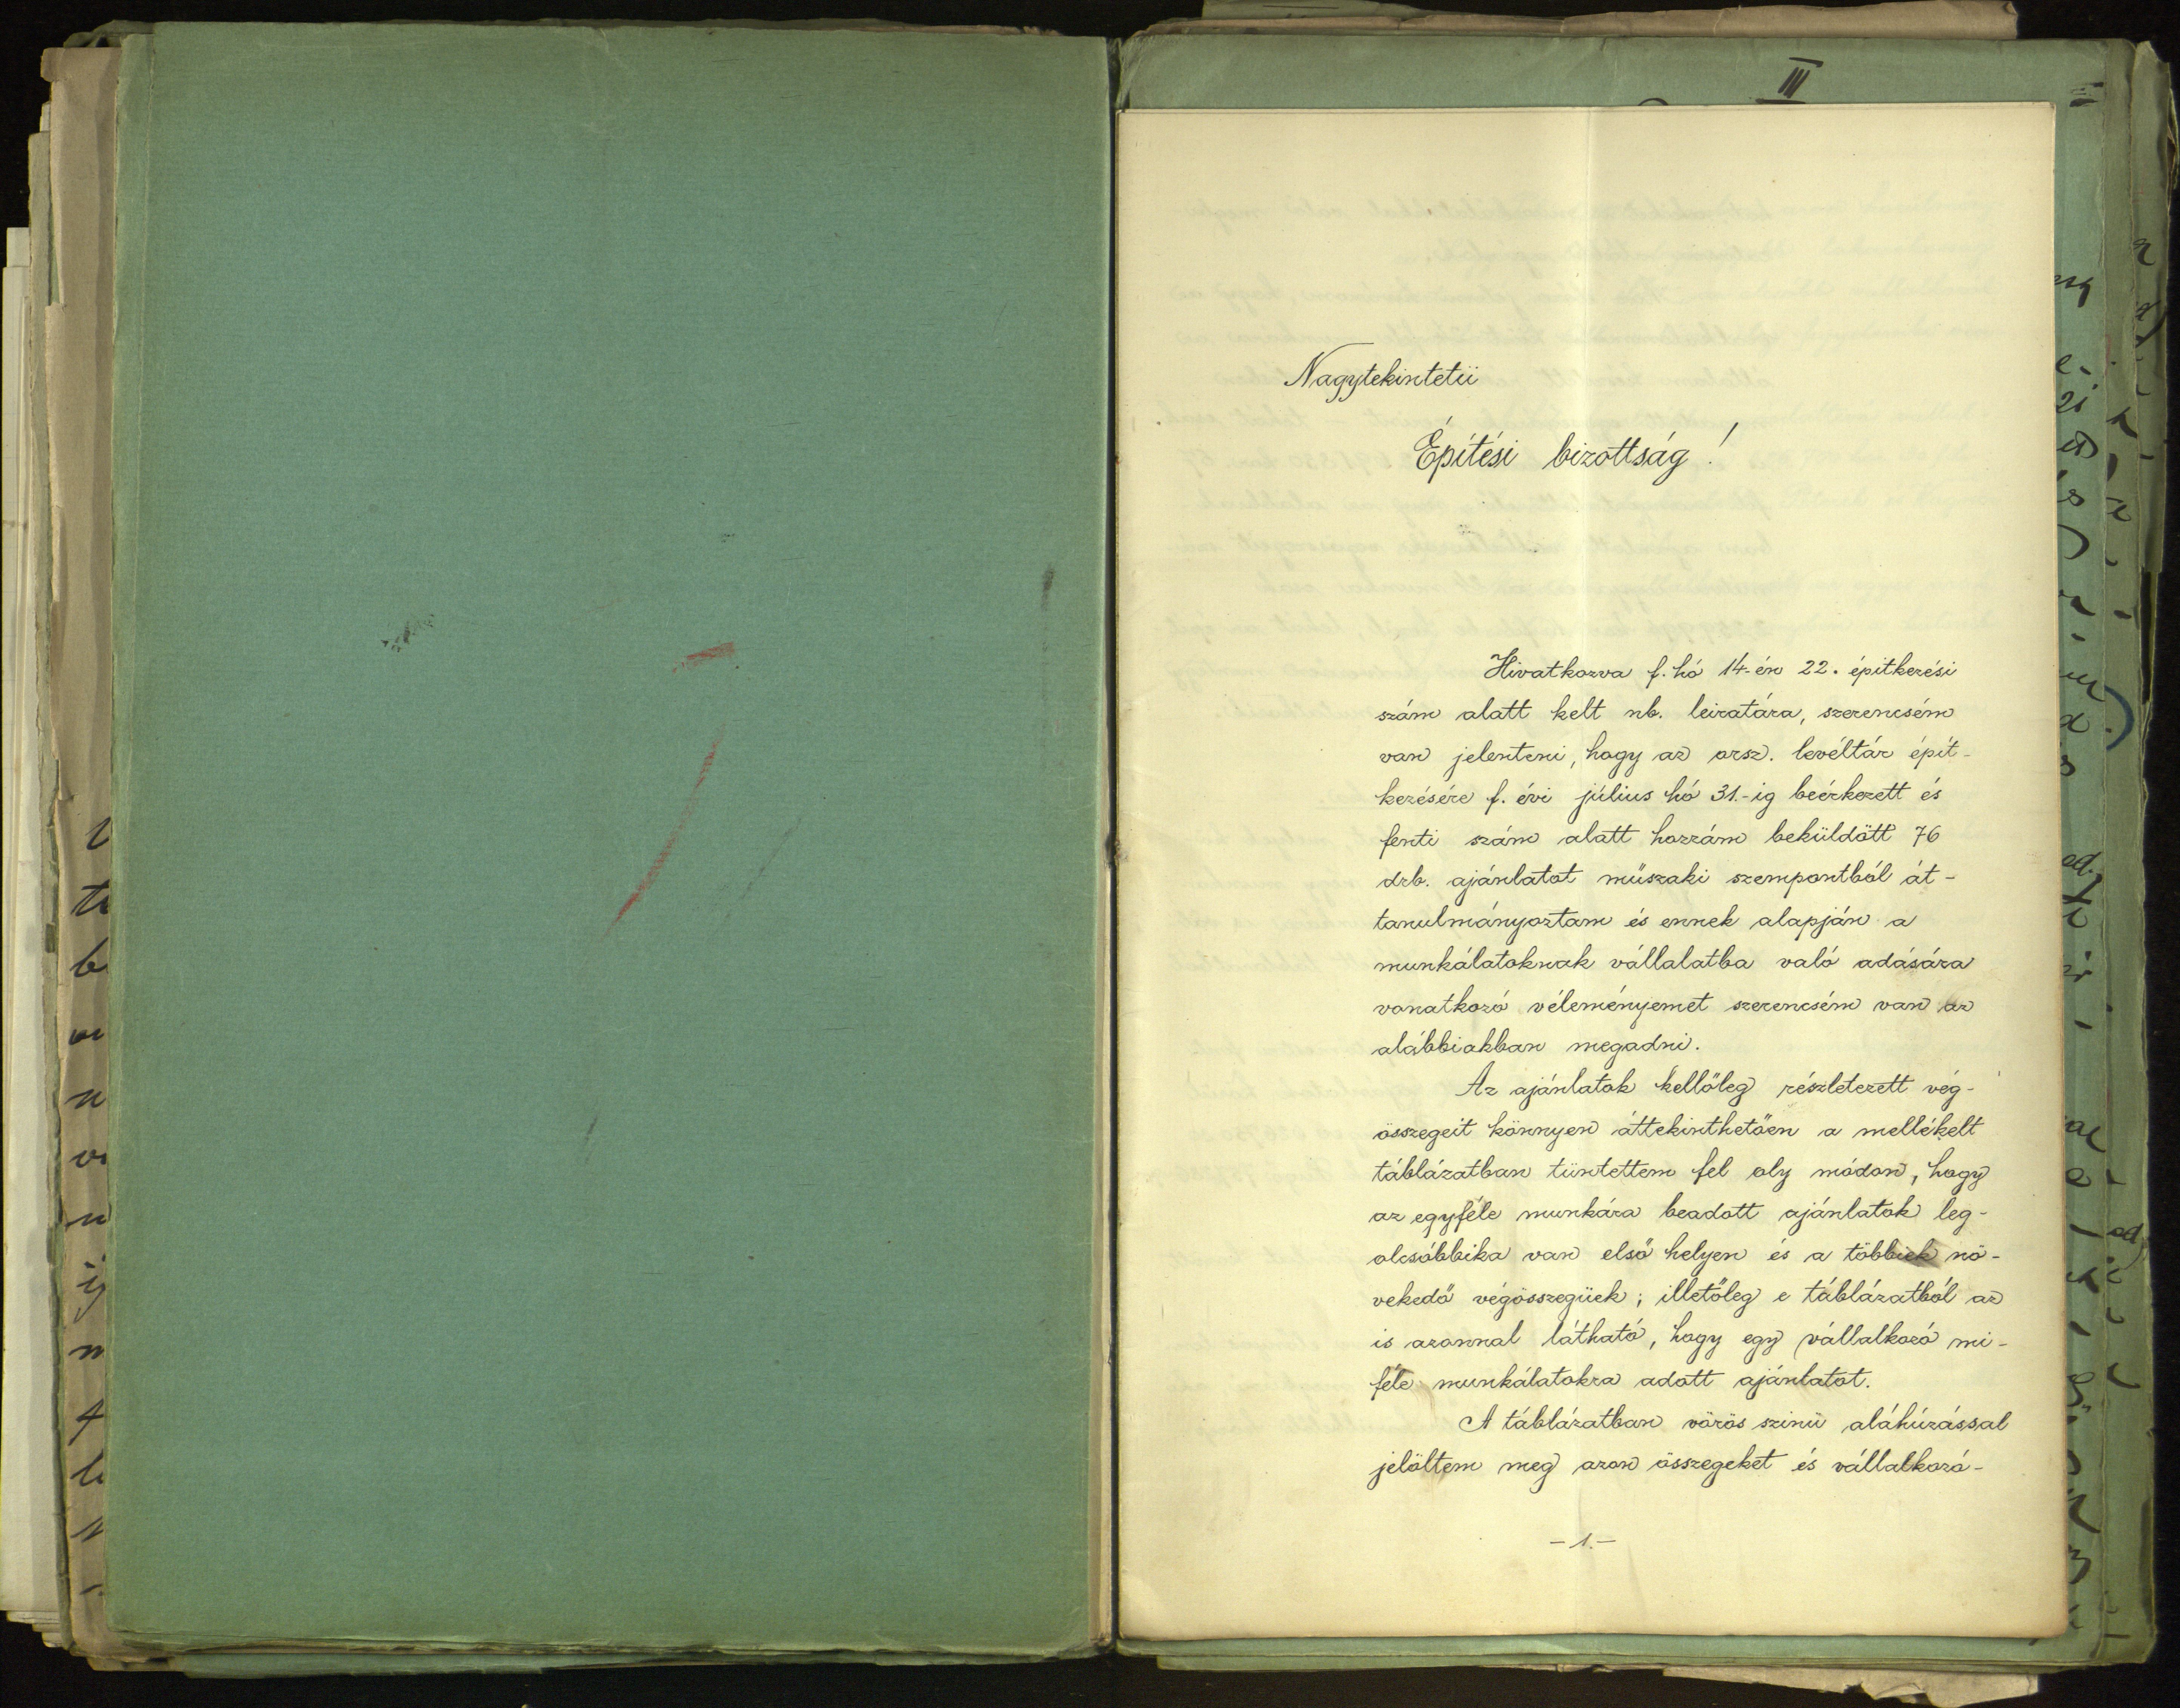 III
Nagytekintetü
Építési bizottság!
Hivatkozva f. hó 14-én 22. épitkezési
szám alatt kelt nb. leiratára, szerencsém
van jelenteni, hogy az orsz. levéltár épít-
kezésére f. évi július hó 31.-ig beérkezett és
fenti szám alatt hozzám beküldött 76
drb. ajánlatot müszaki szempontból át-
tanulmányoztam és ennek alapján a
munkálatoknak vállalatba való adására
vonatkozó véleményemet szerencsém van az
alábbiakban megadni.
Az ajánlatok kellőleg részletezett vég-
összegeit könnyen áttekinthetően a mellékelt
táblázatban tüntettem fel oly módon, hogy
az egyféle munkára beadott ajánlatok leg-
olcsóbbika van első helyen és a többiek nö-
vekedő végösszegüek; illetőleg e táblázatból az
is azonnal látható, hogy egy vállalkozó mi-
féle munkálatokra adott ajánlatot.
A táblázatban vörös szinü aláhúzással
jelöltem meg azon összegeket és vállalkozó-
-1.-